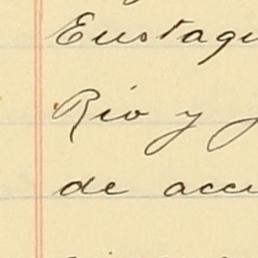 Eustaqu
Rio y
de acci